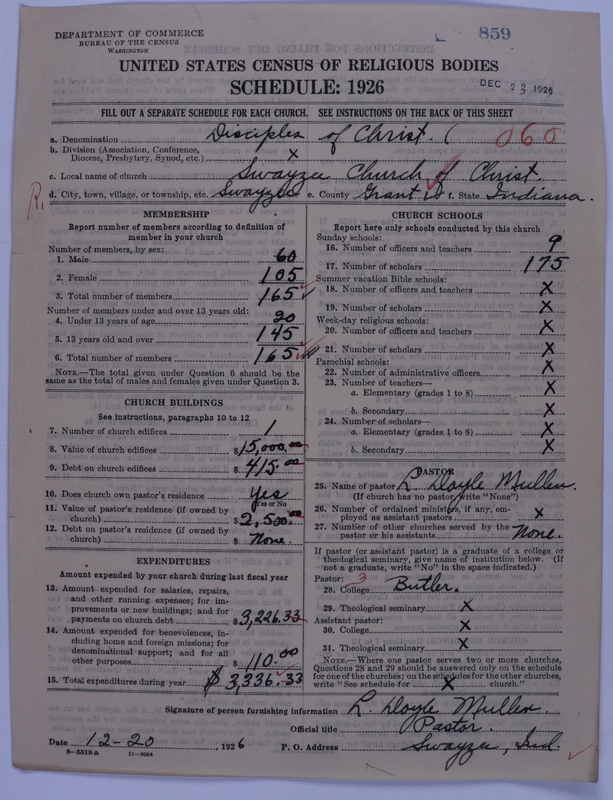 859
DEPARTMENT OF COMMERCE
BUREAU OF THE CENSUS
WASHINGTON
UNITED STATES CENSUS OF RELIGIOUS BODIES
SCHEDULE: 1926
DEC 23 1926
FILL OUT A SEPARATE SCHEDULE FOR EACH CHURCH. SEE INSTRUCTIONS ON THE BACK OF THIS SHEET
a. Denomination Disciples of Christ. ( 060
b. Division (Association, Conference,
Diocese, Presbytery, Synod, etc.) X
c. Local name of church Swayzee Church of Christ.
d. City, town, village, or township, etc. Swayzee e. County Grant f. State Indiana.
MEMBERSHIP
Report number of members according to definition of
member in your church
Number of members, by sex:
1. Male 60
2. Female 105
3. Total number of members 165
Number of members under and over 13 years old:
4. Under 13 years of age 20
5. 13 years old and over 145
6. Total number of members 165
NOTE.—The total given under Question 6 should be
same as the total of males and females given under Question 3.
CHURCH BUILDINGS
See instructions, paragraphs 10 to 12
7. Number of church edifices 1
8. Value of church edifices $15,000.00
9. Debt on church edifices $ 415.00
10. Does church own pastor's residence Yes
Yes or No
11. Value of pastor's residence (if owned by
church) $2,500.00
12. Debt on pastor's residence (if owned by
church) $ None.
EXPENDITURES
Amount expended by your church during last fiscal year
13. Amount expended for salaries, repairs,
and other running expenses; for im-
provements or new buildings; and for
payments on church debt $3,226.33
14. Amount expended for benevolences, in-
cluding home and foreign missions; for
denominational support; and for all
other purposes $ 110.00
15. Total expenditures during year $ 3,336.33
CHURCH SCHOOLS
Report here only schools conducted by this church
Sunday schools:
16. Number of officers and teachers 9
17. Number of scholars 175
Summer vacation Bible schools:
18. Number of officers and teachers X
19. Number of scholars X
Week-day religious schools:
20. Number of officers and teachers X
21. Number of scholars X
Parochial schools:
22. Number of administrative officers X
23. Number of teachers—
a. Elementary (grades 1 to 8) X
b. Secondary X
24. Number of scholars—
a. Elementary (grades 1 to 8) X
b. Secondary X
PASTOR
25. Name of pastor L. Doyle Mullen.
(If church has no pastor, write "None")
26. Number of ordained ministers, if any, em-
ployed as assistant pastors X
27. Number of other churches served by the
pastor or his assistants None.
If pastor (or assistant pastor) is a graduate of a college or
theological seminary, give name of institution below. (If
not a graduate, write "No" in the space indicated.)
Pastor: 3
28. College Butler.
29. Theological seminary X
Assistant pastor:
30. College X
31. Theological seminary X
NOTE.—Where one pastor serves two or more churches,
Questions 28 and 29 should be answered only on the schedule
for one of the churches; on the schedules for the other churches,
write "See schedule for X church."
Signature of person furnishing information L. Doyle Mullen.
Official title Pastor.
Date 12-20, 1926 P. O. Address Swayzee, Ind.
8—5518 a 11—9054